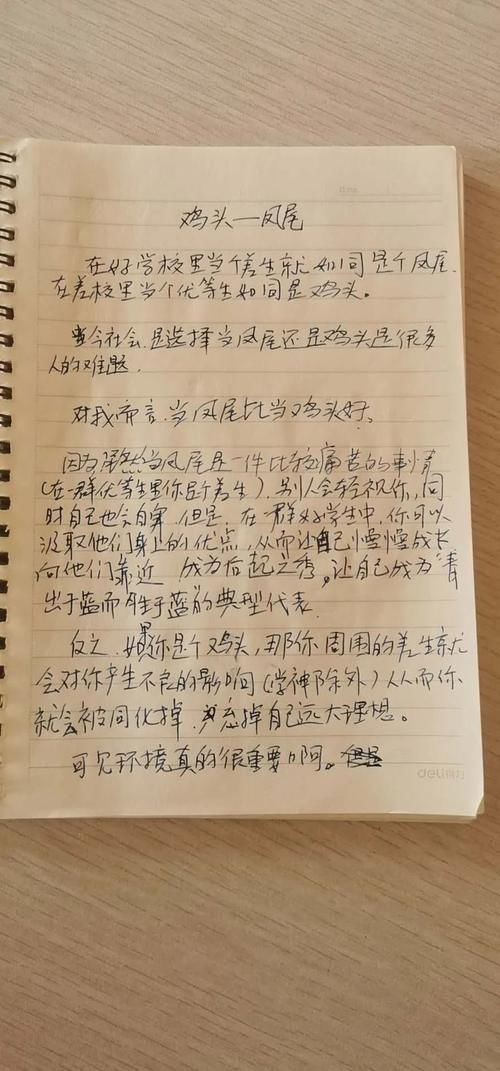 鸡头一凤尾
在好学校里当个差生就如同是个凤尾.
在差校里当个优等生如同是鸡头。
当今社会.是选择当凤尾还是鸡头是很多
人的难题.
对我而言.当凤尾比当鸡头好.
因为虽然当凤尾是一件比较痛苦的事情
(在一群优等生里你是个差生).别人会轻视你,同
时自己也会自卑.但是.在一群好学生中,你可以
汲取他们身上的优点,从而让自己慢慢成长
向他们靠近 成为后起之秀,让自己成为“青
出于蓝而胜于蓝”的典型代表.
反之.如果你是个鸡头,那你周围的差生就
会对你产生不良的影响(学神除外)从而你
就会被同化掉.并忘掉自己远大理想。
可见环境真的很重要啊。
deli得力